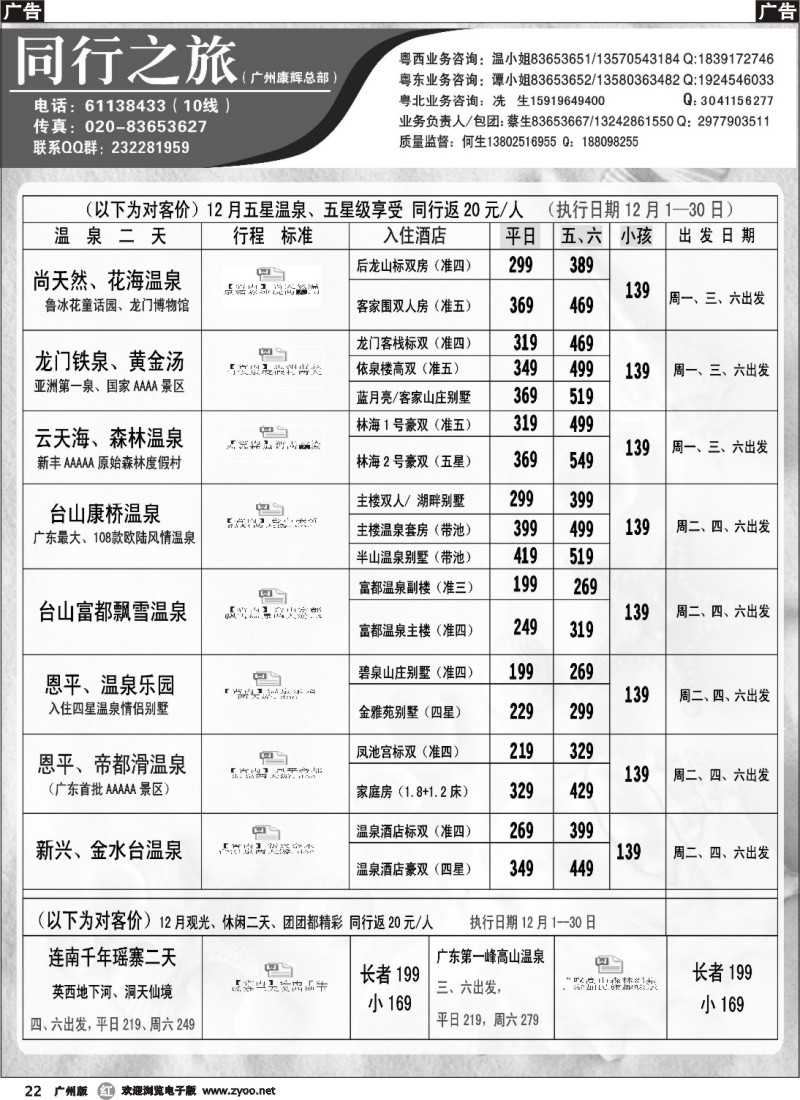 广告
广告
同行之旅（广州康辉总部）
电话：61138433（10线）
传真：020-83653627
联系QQ群：232281959
粤西业务咨询：温小姐83653651/13570543184 Q:1839172746
粤东业务咨询：谭小姐83653652/13580363482 Q:1924546033
粤北业务咨询：冼 生15919649400 Q:3041156277
业务负责人/包团：蔡生83653667/13242861550 Q：2977903511
质量监督：何生13802516955 Q：188098255
（以下为对客价）12月五星温泉、五星级享受 同行返20元/人 （执行日期12月1—30日）
温泉二天 行程 标准 入住酒店 平日 五、六 小孩 出发日期
尚天然、花海温泉
鲁冰花童话园、龙门博物馆
后龙山标双房（准四） 299 389
客家围双人房（准五） 369 469
139 周一、三、六出发
龙门铁泉、黄金汤
亚洲第一泉、国家AAAA景区
龙门客栈标双（准四） 319 469
依泉楼高双（准五） 349 499
蓝月亮/客家山庄别墅 369 519
139 周一、三、六出发
云天海、森林温泉
新丰AAAAA原始森林度假村
林海1号豪双（准五） 319 499
林海2号豪双（五星） 369 549
139 周一、三、六出发
台山康桥温泉
广东最大、108款欧陆风情温泉
主楼双人/ 湖畔别墅 299 399
主楼温泉套房（带池） 399 499
半山温泉别墅（带池） 419 519
139 周二、四、六出发
台山富都飘雪温泉
富都温泉副楼（准三） 199 269
富都温泉主楼（准四） 249 319
139 周二、四、六出发
恩平、温泉乐园
入住四星温泉情侣别墅
碧泉山庄别墅（准四） 199 269
金雅苑别墅（四星） 229 299
139 周二、四、六出发
恩平、帝都滑温泉
（广东首批AAAAA景区）
凤池宫标双（准四） 219 329
家庭房（1.8+1.2床） 329 429
139 周二、四、六出发
新兴、金水台温泉
温泉酒店标双（准四） 269 399
温泉酒店豪双（四星） 349 449
139 周二、四、六出发
（以下为对客价）12月观光、休闲二天、团团都精彩 同行返20元/人 执行日期12月1--30日
连南千年瑶寨二天
英西地下河、洞天仙境
四、六出发，平日219、周六249
长者199
小169
广东第一峰高山温泉
三、六出发，
平日219，周六279
长者199
小169
22 广州版 红 欢迎浏览电子版 www.zyoo.net